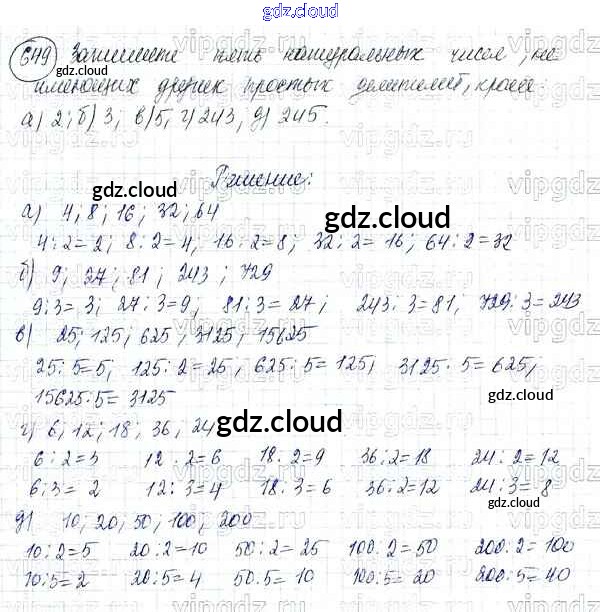 gdz.cloud
649 Запишите пять натуральных чисел, не
gdz.cloud
имеющих других простых делителей, кроме
а) 2; б) 3; в) 5; г) 243; д) 245.
Решение:
gdz.cloud
gdz.cloud
а) 4; 8; 16; 32; 64
4:2=2; 8:2=4; 16:2=8; 32:2=16; 64:2=32
б) 9; 27; 81; 243; 729
9:3=3; 27:3=9; 81:3=27; 243:3=81; 729:3=243
в) 25; 125; 625; 3125; 15625
25:5=5; 125:2=25, 625:5=125; 3125:5=625;
15625:5=3125
gdz.cloud
г) 6; 12; 18; 36, 24
gdz.cloud
6:2=3 12:2=6 18:2=9 36:2=18 24:2=12
6:3=2 12:3=4 18:3=6 36:2=12 24:3=8
gdz.cloud gdz.cloud gdz.cloud gdz.cloud
д) 10; 20; 50; 100; 200
10:2=5 20:2=10 50:2=25 100:2=50 200:2=100
10:5=2 20:5=4 50:5=10 100:5=20 200:5=40
gdz.cloud gdz.cloud gdz.cloud gdz.cloud